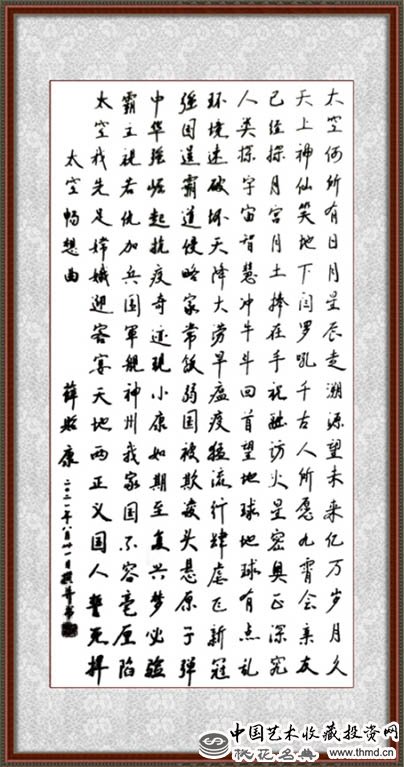 太空何所有日月星辰走溯源望未来亿万岁月久
天上神仙笑地下阎罗吼千古人所愿九霄会亲友
已经探月宫月土捧在手祝融访火星密奥正深究
人类探宇宙智慧冲牛斗回首望地球地球有点乱
环境速破坏天降大涝旱瘟疫猛流行肆虐飞新冠
强国逞霸道侵略家常饭弱国被欺凌头悬原子弹
中华强崛起抗疫奇迹现小康如期至复兴梦必臻
霸主视若仇加兵围军舰神州我家国不容毫厘陷
太空我先足嫦娥迎客宴天地两正义国人誓死捍
太空畅想曲
薛照康
二〇二一年八月廿一日撰并书
中国艺术收藏投资网
收花名典 www.thmd.cn